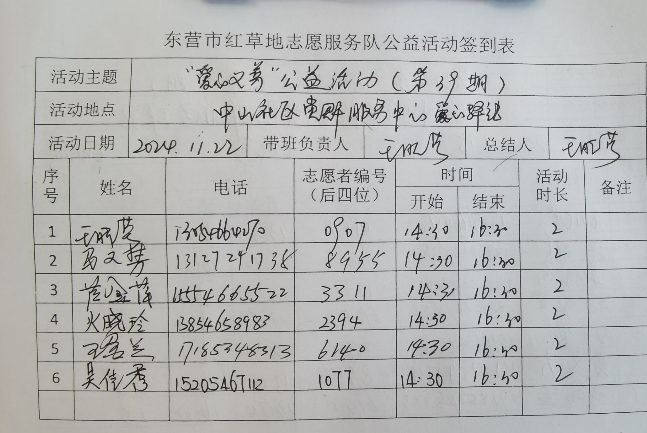 东营市红草地志愿服务队公益活动签到表
活动主题 "爱心义剪"公益活动(第39期)
活动地点 中山社区党群服务中心爱心驿站
活动日期 2024.11.22 带班负责人 总结人
序号 姓名 电话 志愿者编号(后四位) 时间 开始 结束 活动时长 备注
1 0907 14:30 16:30 2
2 13127241738 8955 14:30 16:30 2
3 15554665522 3311 14:30 16:30 2
4 火晓玲 13854658983 2394 14:30 16:30 2
5 17185348313 6140 14:30 16:30 2
6 吴佳秀 15205467112 1077 14:30 16:30 2